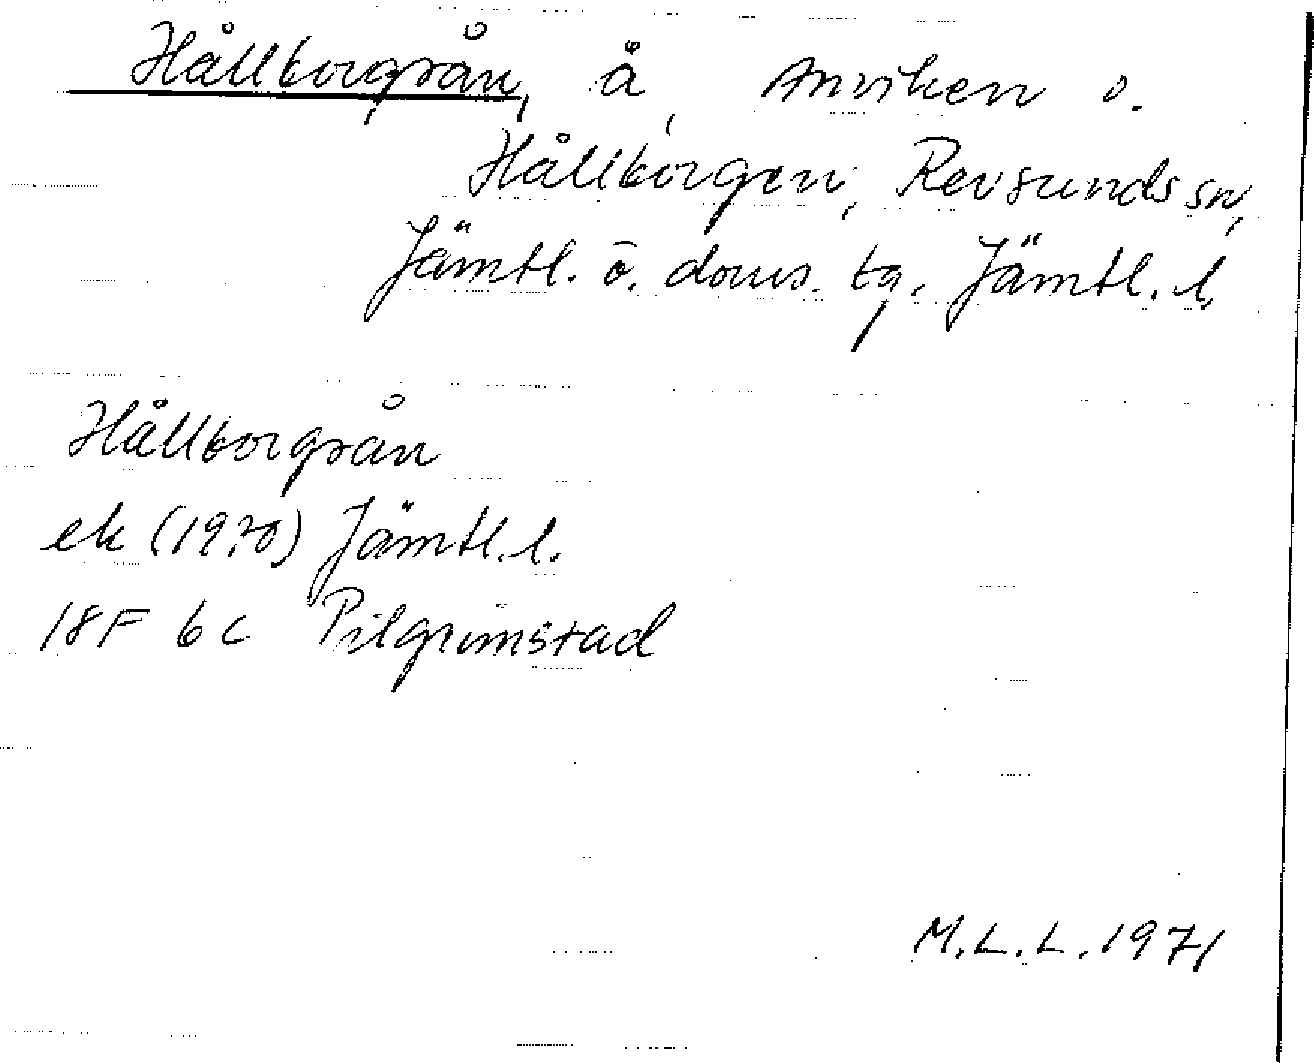 Hållborgsån, å, Anviken o.
Hållborgen, Revsunds sn,
Jämtl. ö. doms. tg, Jämtl. l.
Hållborgsån
ek (1970) Jämtl. l.
18F 6c Pilgrimstad
M.L.L. 1971